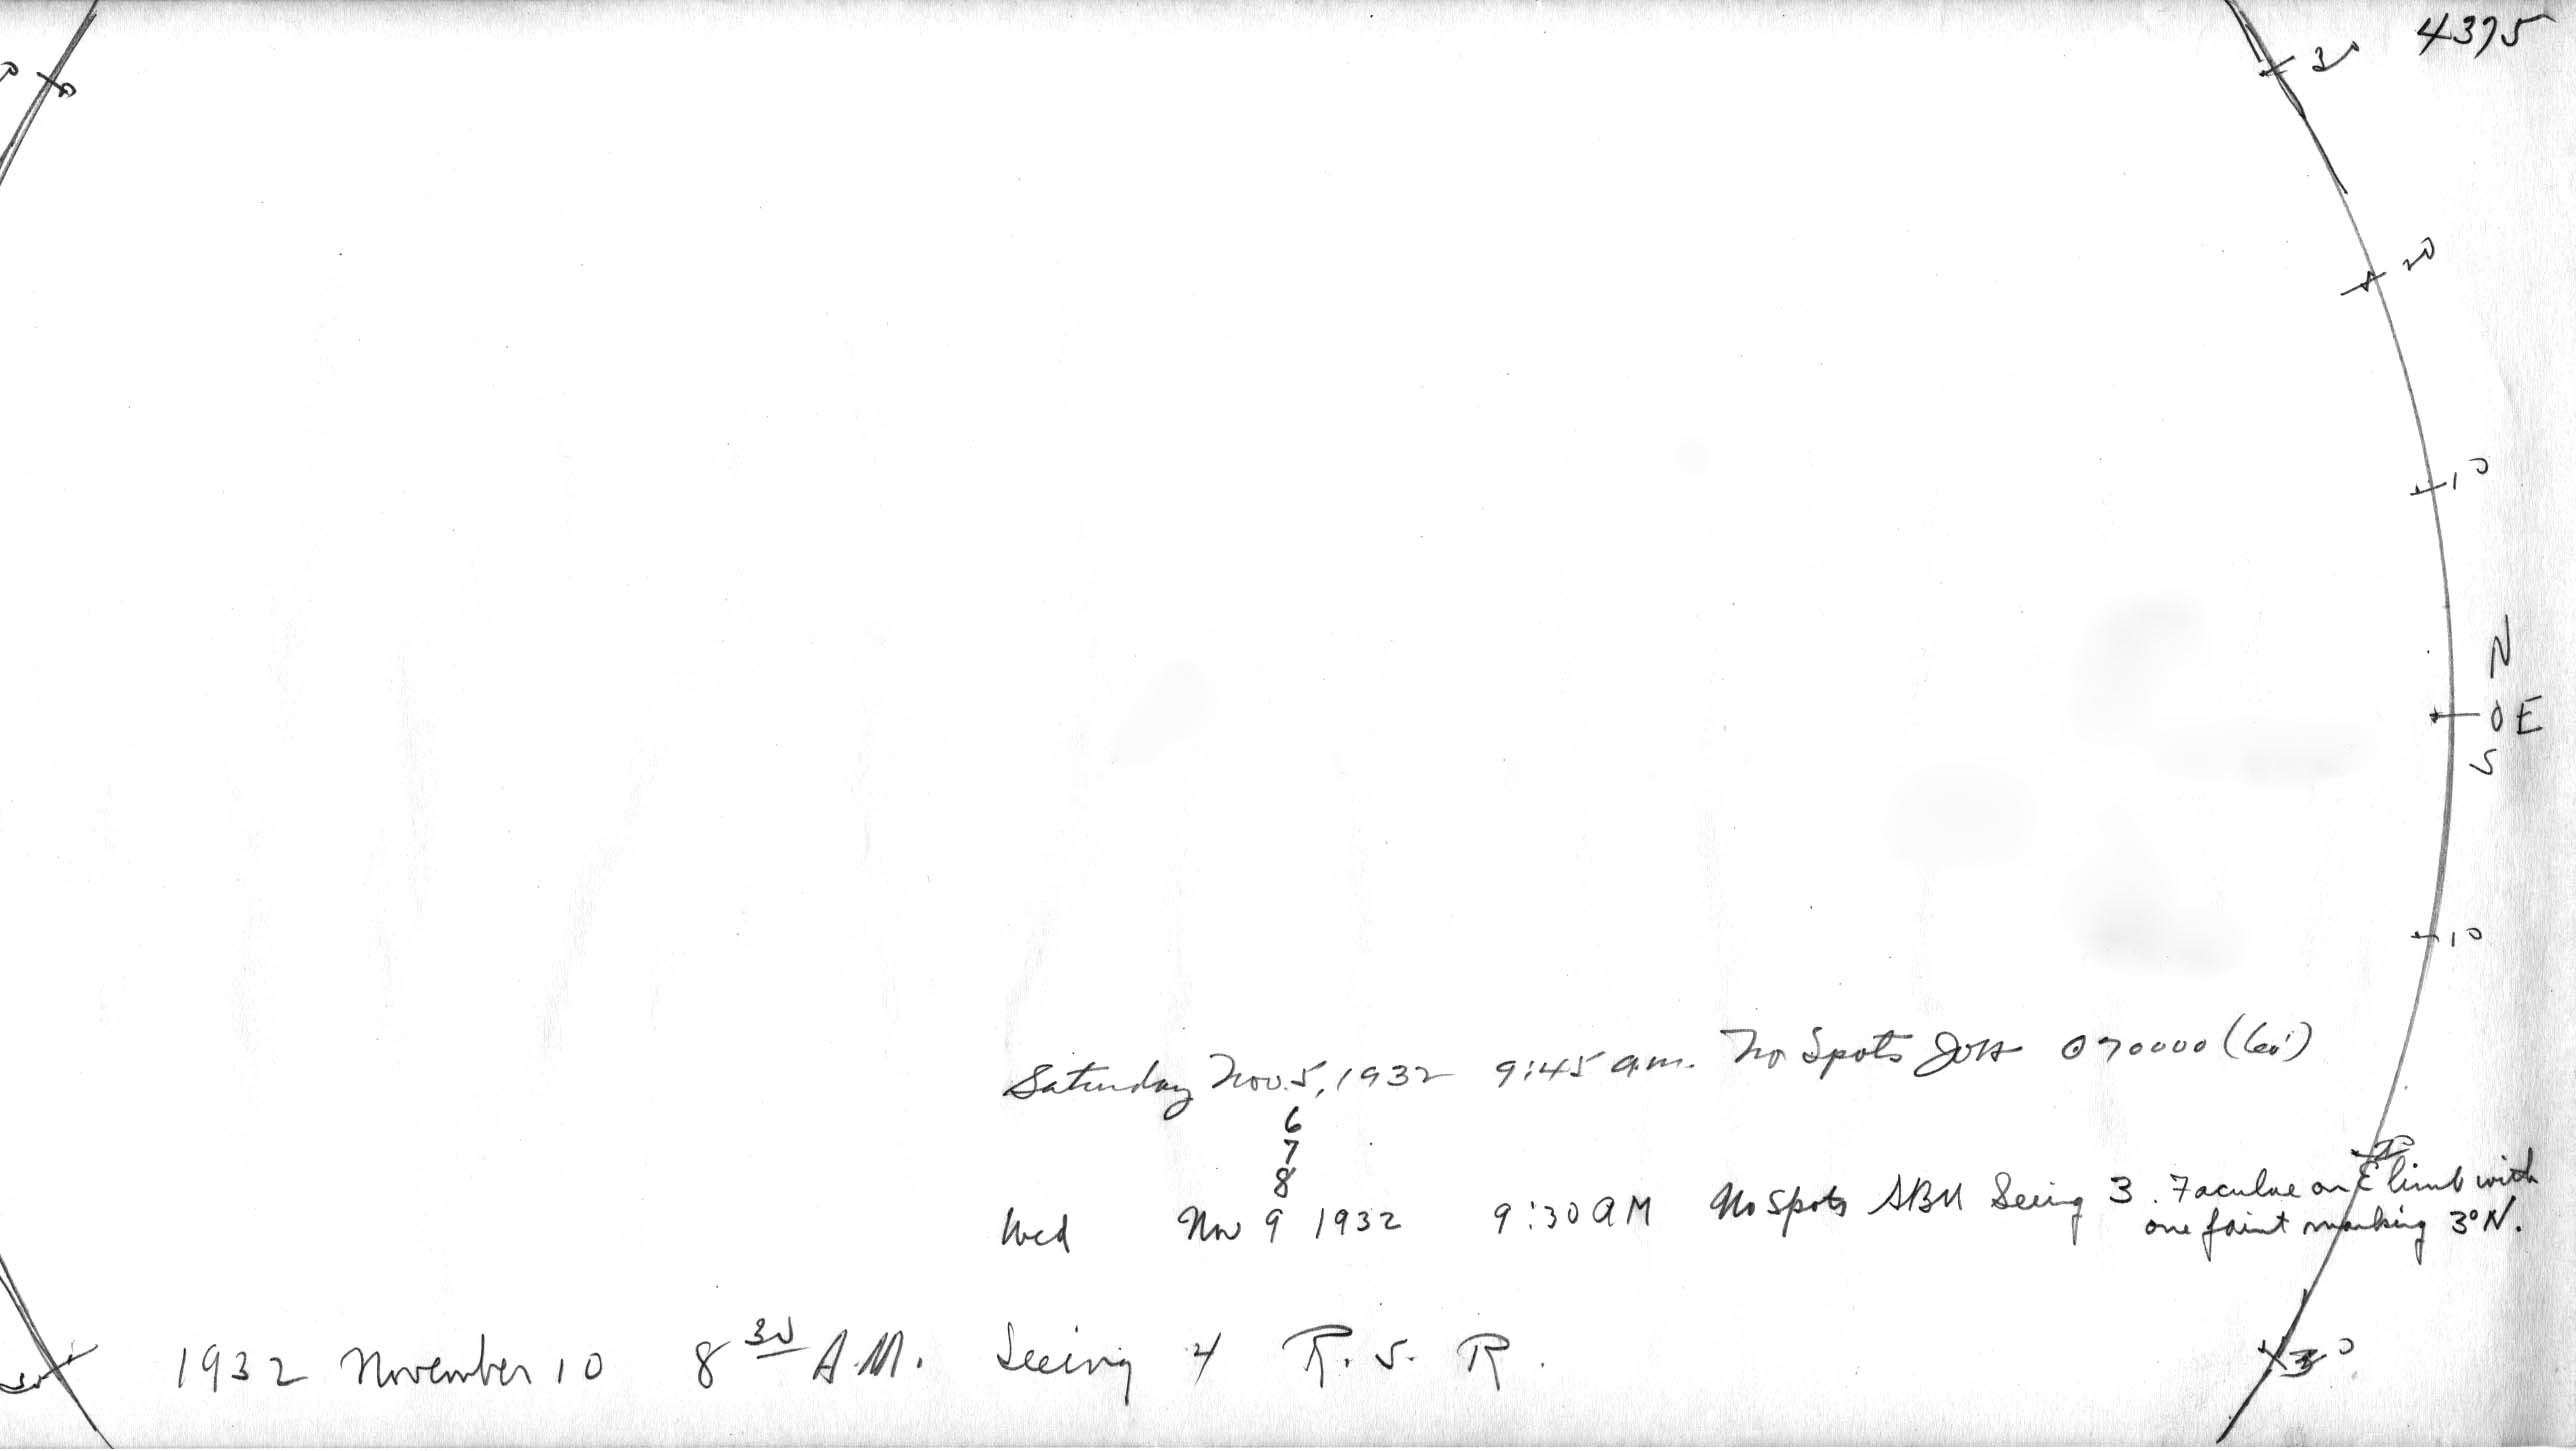 4375
30
20
10
N
0 E
S
10
Saturday Nov. 5, 1932 9:45 a.m. No Spots
6
7
8
20
Wed Nov 9 1932 9:30 AM No Spots SBN Seeing 3. Faculae on E limb with
one faint marking 3° N.
30
1932 November 10 8 30 A.M. Seeing 4 R. S. R.
30